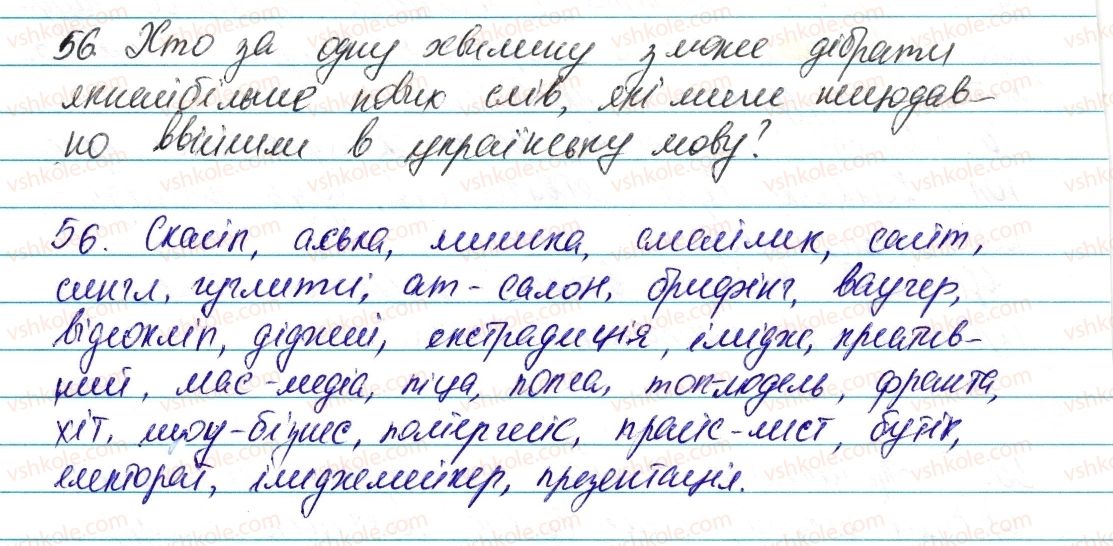 56. Хто за одну хвилину зможе дібрати
якнайбільше нових слів, які лише нещодав-
но ввійшли в українську мову?
56. Скайп, аська, мишка, смайлик, саміт,
сингл, гуглити, арт-салон, брифінг, ваучер,
відеокліп, діджей, екстрадиція, імідж, креатив-
ний, мас-медіа, піца, попса, топ-модель, фразта,
хіт, шоу-бізнес, поліергейс, прайс-лист, бутік,
електорат, іміджмейкер, презентація.
vshkole.com